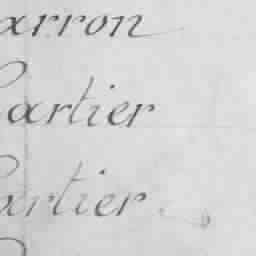 arron
Cartier
Cartier